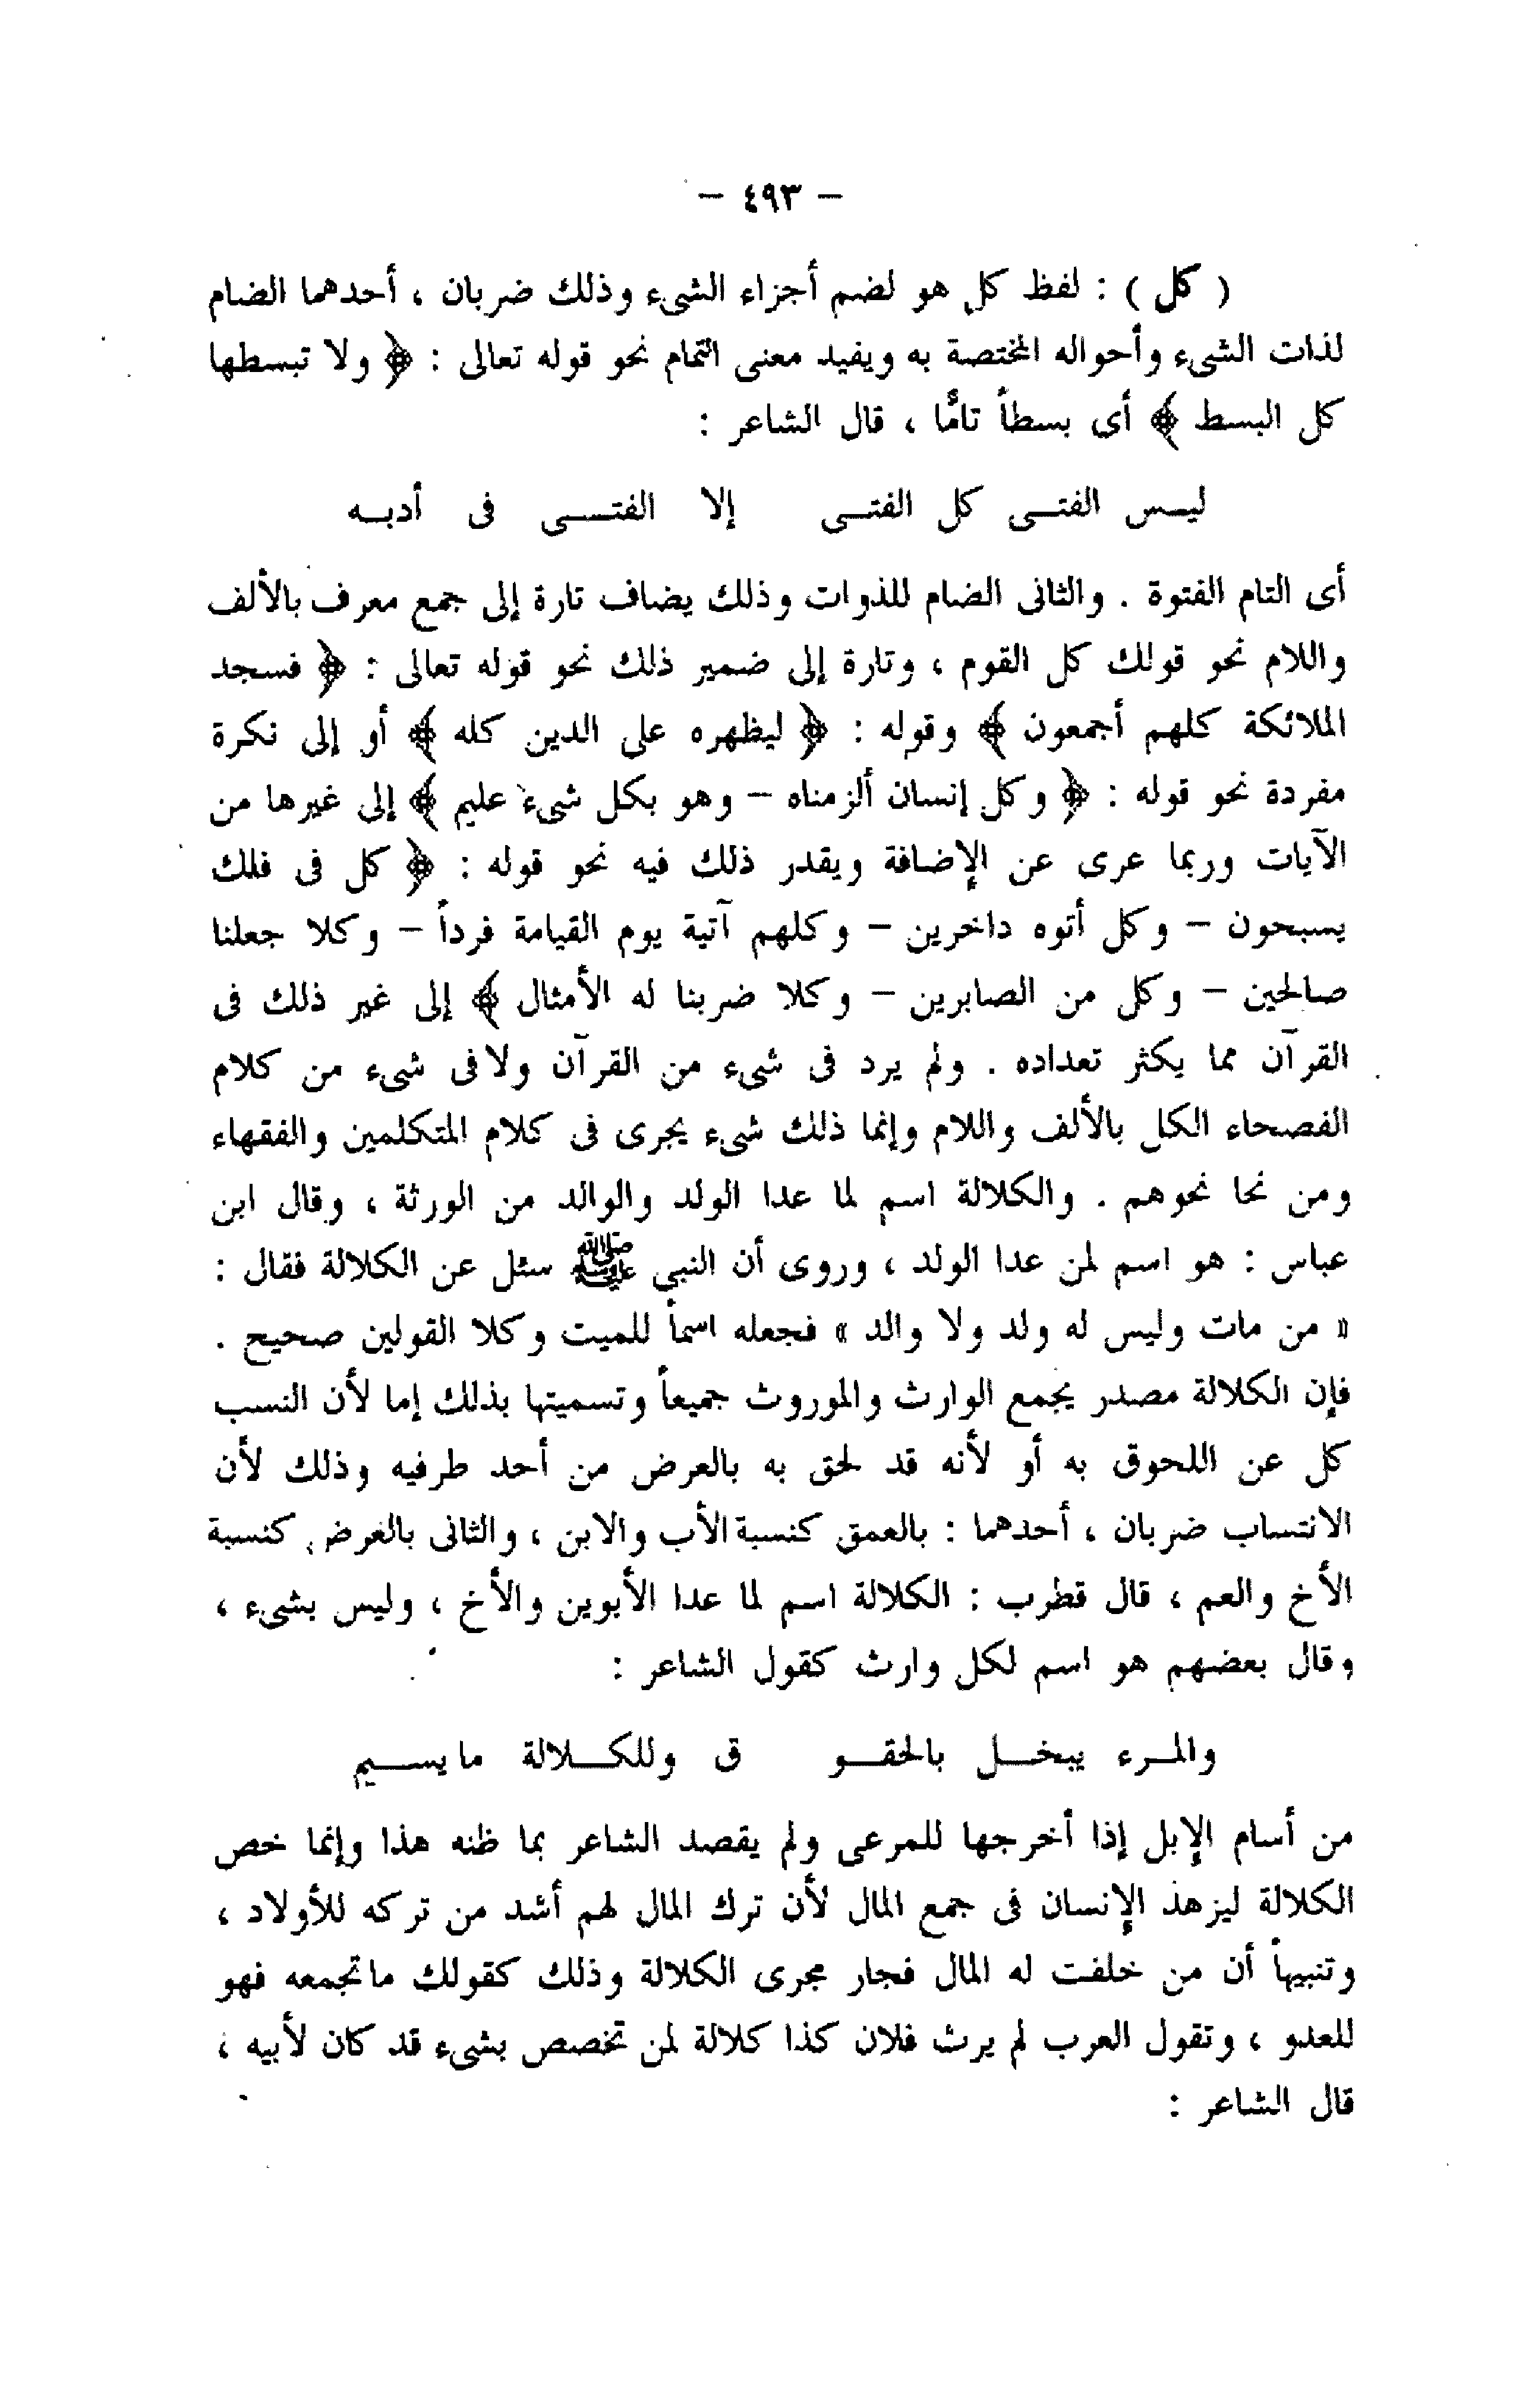 – ٤٩٣ –
( كل ) : لفظ كل هو لضم أجزاء الشىء وذلك ضربان ، أحدهما الضام
لذات الشىء وأحواله المختصة به ويفيد معنى التمام نحو قوله تعالى : ﴿ ولا تبسطها
كل البسط ﴾ أى بسطاً تامًّا ، قال الشاعر :
ليس الفتى كل الفتى إلا الفتى فى أدبه
أى التام الفتوة . والثانى الضام للذوات وذلك يضاف تارة إلى جمع معرف بالألف
واللام نحو قولك كل القوم ، وتارة إلى ضمير ذلك نحو قوله تعالى : ﴿ فسجد
الملائكة كلهم أجمعون ﴾ وقوله : ﴿ ليظهره على الدين كله ﴾ أو إلى نكرة
مفردة نحو قوله : ﴿ وكل إنسان ألزمناه – وهو بكل شىء عليم ﴾ إلى غيرها من
الآيات وربما عرى عن الإضافة ويقدر ذلك فيه نحو قوله : ﴿ كل فى فلك
يسبحون – وكل أتوه داخرين – وكلهم آتية يوم القيامة فرداً – وكلا جعلنا
صالحين – وكل من الصابرين – وكلا ضربنا له الأمثال ﴾ إلى غير ذلك فى
القرآن مما يكثر تعداده . ولم يرد فى شىء من القرآن ولا فى شىء من كلام
الفصحاء الكل بالألف واللام وإنما ذلك شىء يجرى فى كلام المتكلمين والفقهاء
ومن نحا نحوهم . والكلالة اسم لما عدا الولد والوالد من الورثة ، وقال ابن
عباس : هو اسم لمن عدا الولد ، وروى أن النبي ﷺ سئل عن الكلالة فقال :
« من مات وليس له ولد ولا والد » فجعله اسماً للميت وكلا القولين صحيح .
فإن الكلالة مصدر يجمع الوارث والموروث جميعاً وتسميتها بذلك إما لأن النسب
كل عن اللحوق به أو لأنه قد لحق به بالعرض من أحد طرفيه وذلك لأن
الانتساب ضربان ، أحدهما : بالعمق كنسبة الأب والابن ، والثانى بالعرض كنسبة
الأخ والعم ، قال قطرب : الكلالة اسم لما عدا الأبوين والأخ ، وليس بشىء ،
وقال بعضهم هو اسم لكل وارث كقول الشاعر :
والمرء يبخل بالحقو ق وللكلالة ما يسيم
من أسام الإبل إذا أخرجها للمرعى ولم يقصد الشاعر بما ظنه هذا وإنما خص
الكلالة ليزهد الإنسان فى جمع المال لأن ترك المال لهم أشد من تركه للأولاد ،
وتنبيهاً أن من خلفت له المال فجار مجرى الكلالة وذلك كقولك ما تجمعه فهو
للعدو ، وتقول العرب لم يرث فلان كذا كلالة لمن تخصص بشىء قد كان لأبيه ،
قال الشاعر :